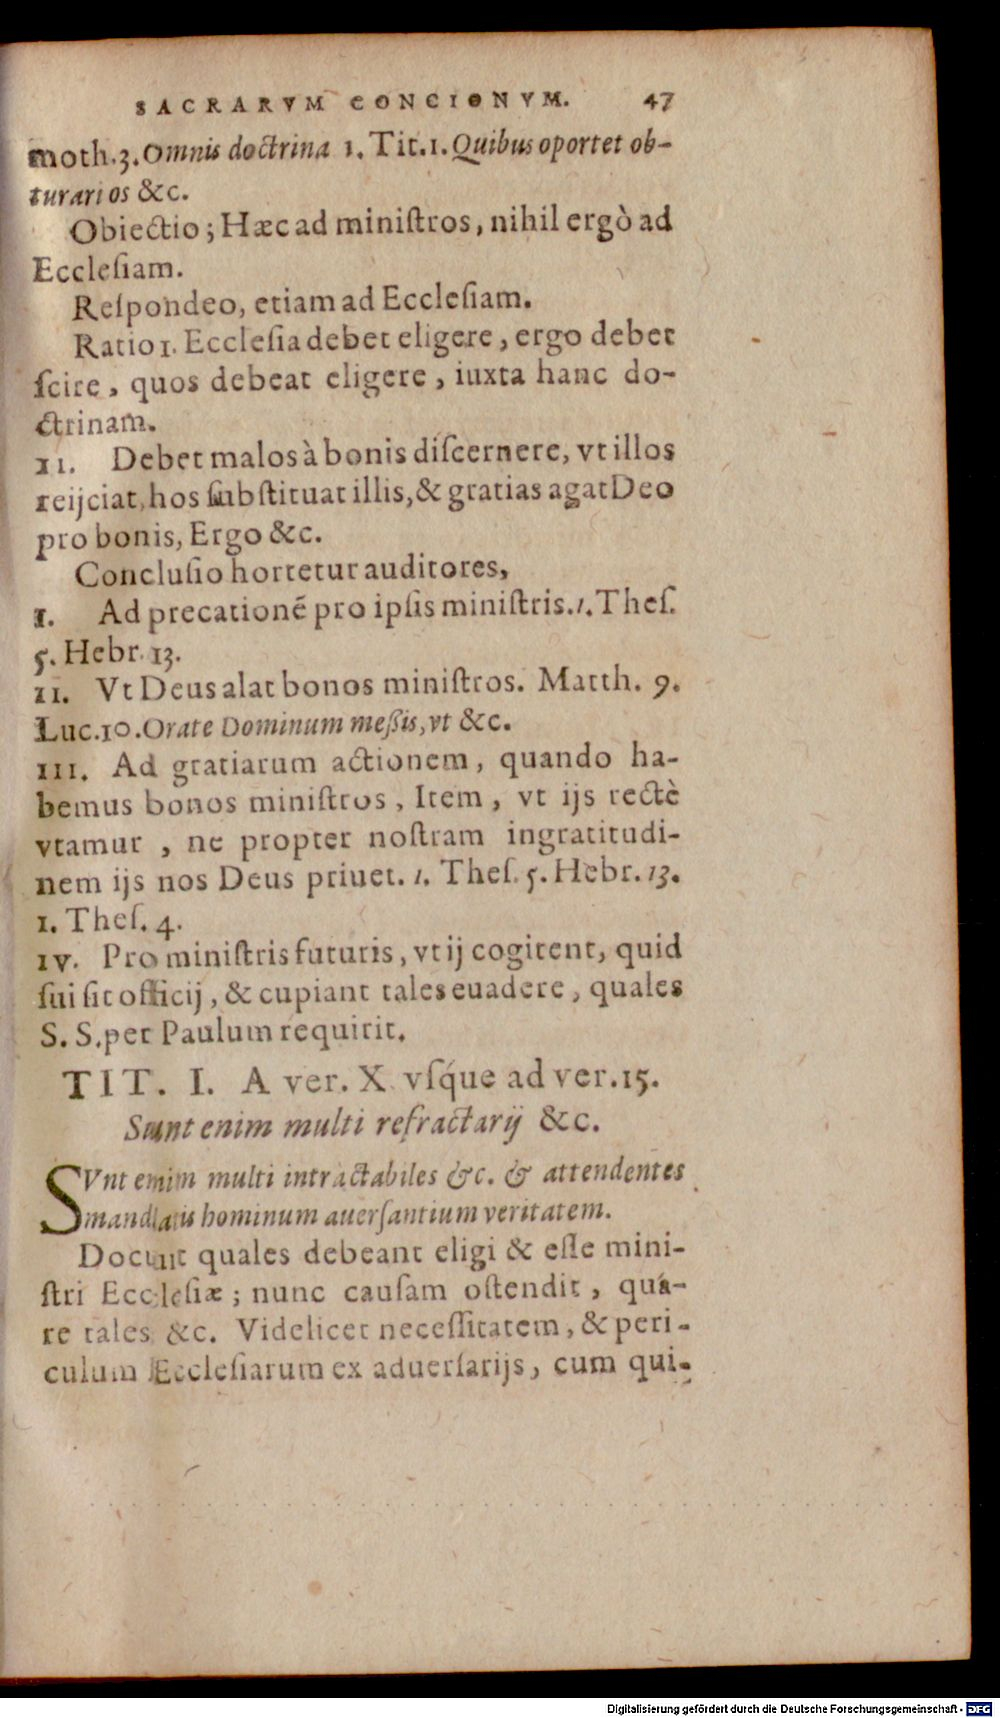 SACRARVM CONCIONVM. 47
moth.3. Omnis doctrina 1. Tit.1. Quibus oportet ob-
turari os &c.
Obiectio; Hæc ad miniſtros, nihil ergò ad
Eccleſiam.
Reſpondeo, etiam ad Eccleſiam.
Ratio 1. Eccleſia debet eligere, ergo debet
ſcire, quos debeat eligere, iuxta hanc do-
ctrinam.
II. Debet malos à bonis diſcernere, vt illos
reijciat, hos ſubſtituat illis, & gratias agat Deo
pro bonis, Ergo &c.
Concluſio hortetur auditores,
I. Ad precationẽ pro ipſis miniſtris. 1. Theſ.
5. Hebr. 13.
II. Vt Deus alat bonos miniſtros. Matth. 9.
Luc.10. Orate Dominum meßis, vt &c.
III. Ad gratiarum actionem, quando ha-
bemus bonos miniſtros, Item, vt ijs rectè
vtamur, ne propter noſtram ingratitudi-
nem ijs nos Deus priuet. 1. Theſ. 5. Hebr. 13.
1. Theſ. 4.
IV. Pro miniſtris futuris, vt ij cogitent, quid
ſui ſit officij, & cupiant tales euadere, quales
S. S. per Paulum requirit.
TIT. I. A ver. X vſq́ue ad ver. 15.
Sunt enim multi refractarij &c.
SVnt enim multi intractabiles &c. & attendentes
mandatis hominum auerſantium veritatem.
Docuit quales debeant eligi & eſſe mini-
ſtri Eccleſiæ; nunc cauſam oſtendit, qua-
re tales &c. Videlicet neceſſitatem, & peri-
culum Eccleſiarum ex aduerſarijs, cum qui-
Digitalisierung gefördert durch die Deutsche Forschungsgemeinschaft - DFG